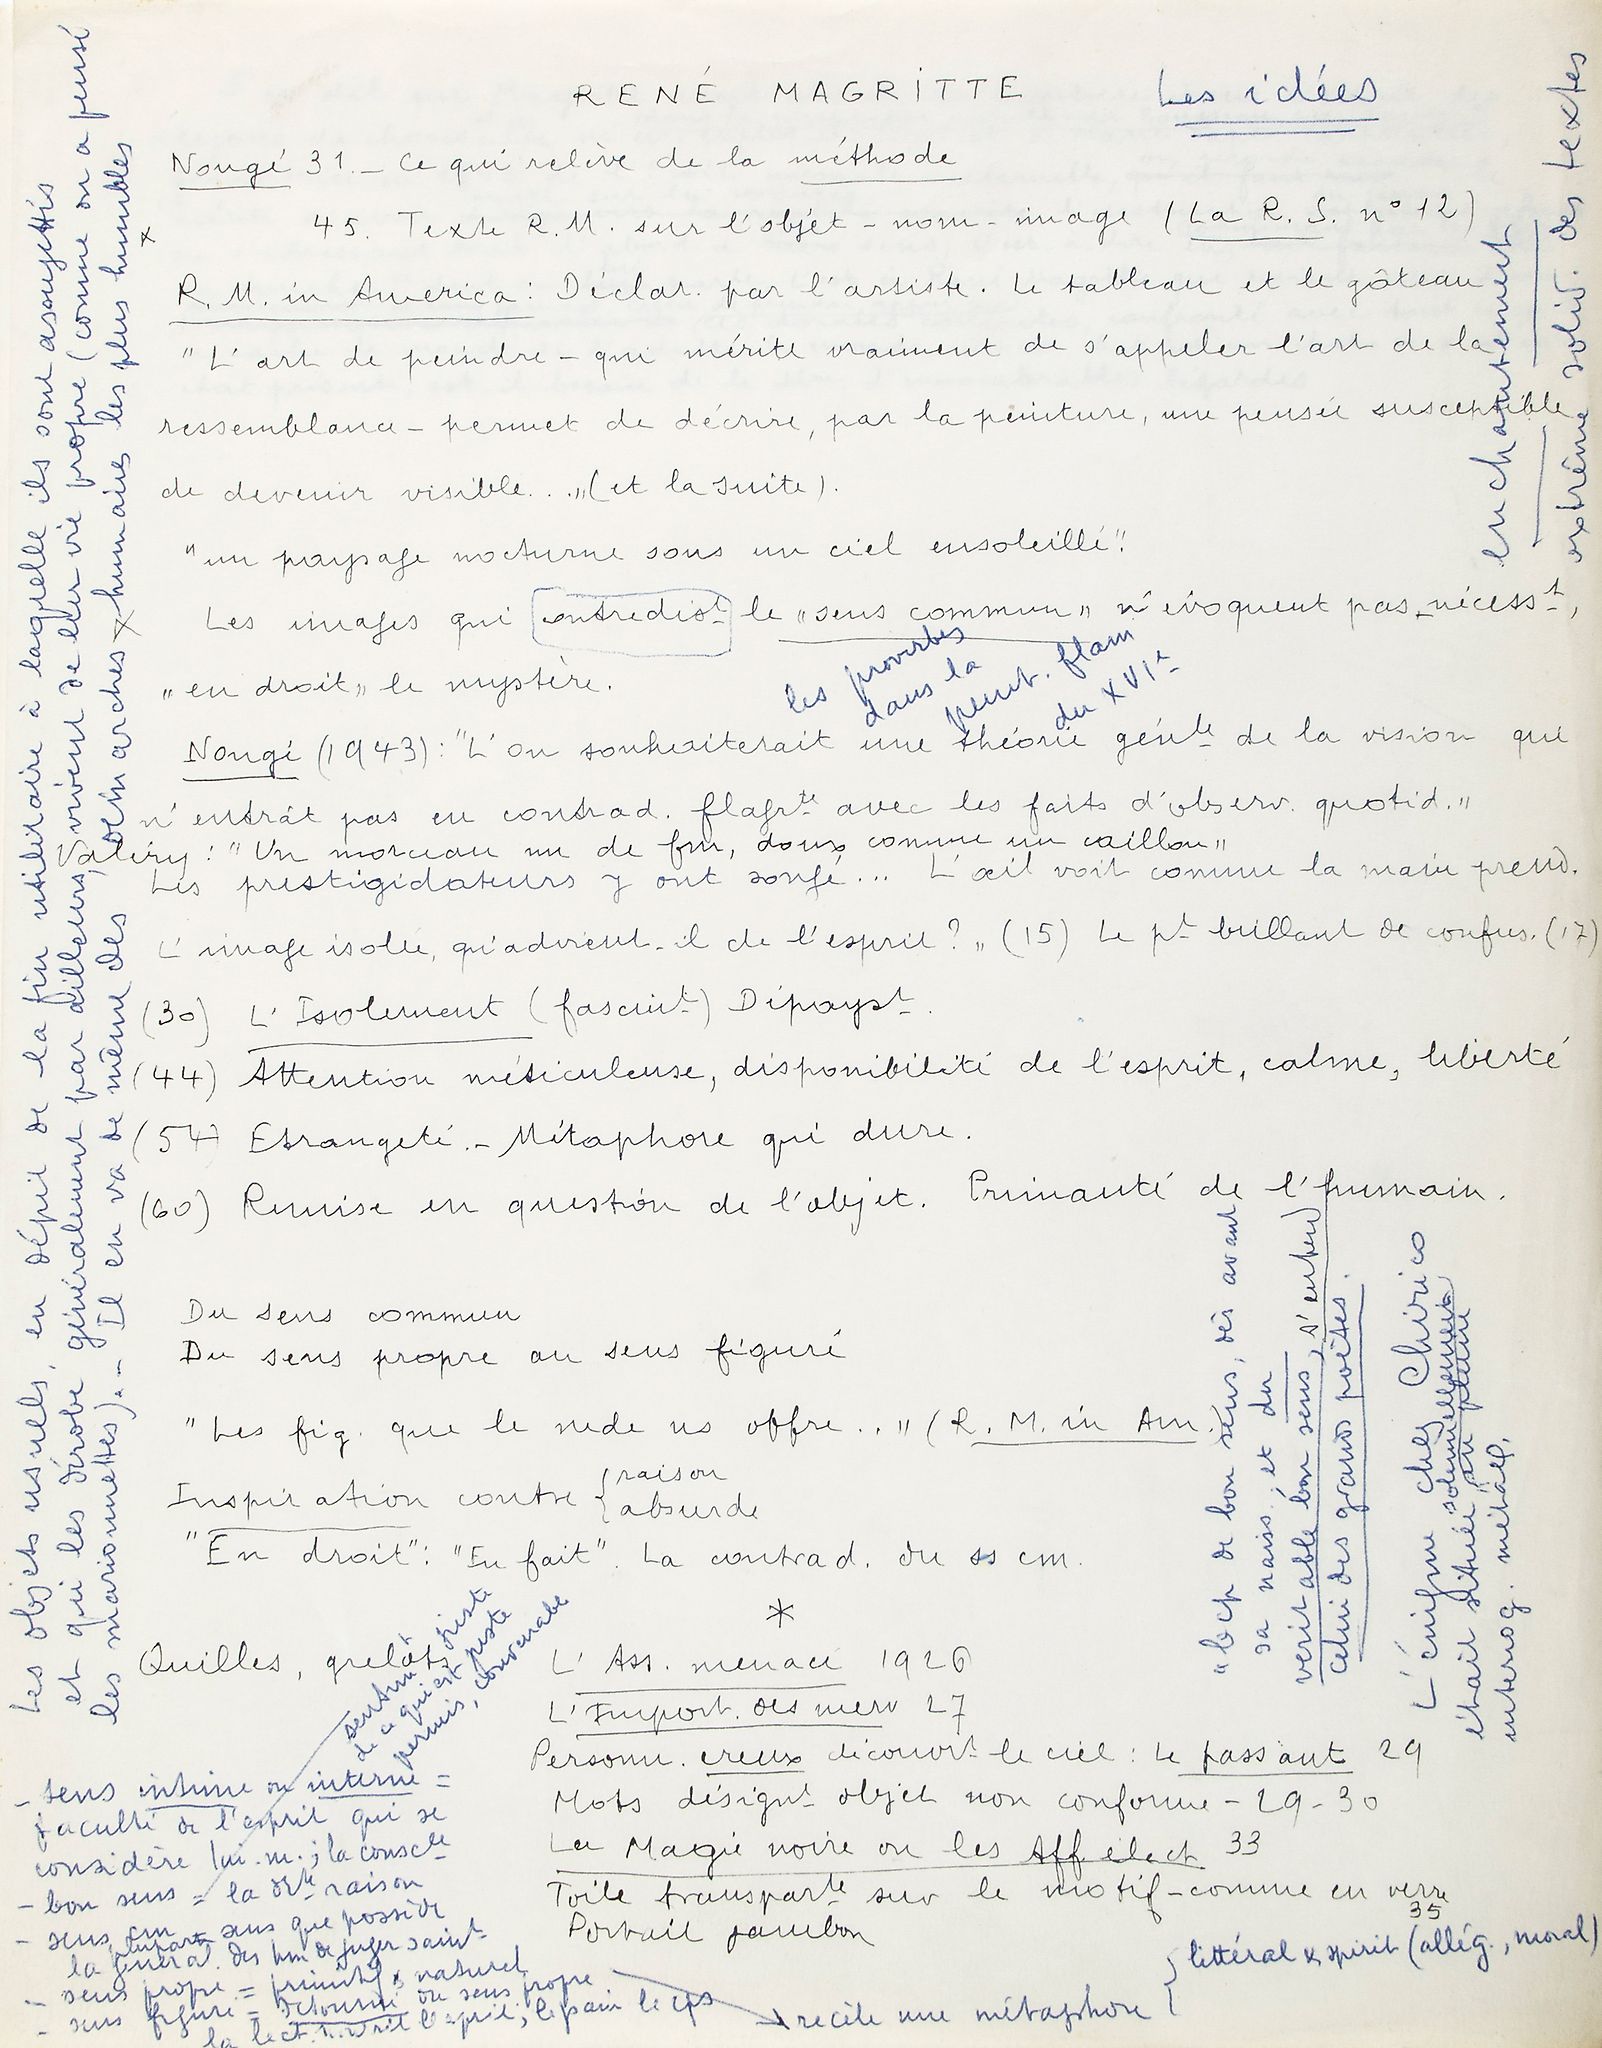 RENÉ MAGRITTE
Les idées
Nougé 31 – Ce qui relève de la méthode
45. Texte R.M. sur l'objet – nom – image (La R. S. n° 12)
R.M. in America : Déclar. par l'artiste. Le tableau et le gâteau
"L'art de peindre – qui mérite vraiment de s'appeler l'art de la
ressemblance – permet de décrire, par la peinture, une pensée susceptible
de devenir visible..." (et la suite).
"un paysage nocturne sous un ciel ensoleillé".
Les images qui contredist le "sens commun" n'évoquent pas nécesst,
"en droit" le mystère.
les proverbes
dans la
peint. flam
du XVIe
Nougé (1943) : "L'on souhaiterait une théorie génle de la vision qui
n'entrât pas en contrad. flagrte avec les faits d'observ. quotid."
Valéry : "Un morceau nu de fm, doux comme un caillou"
Les prestigidateurs y ont songé... L'œil voit comme la main prend.
L'image isolée, qu'advient-il de l'esprit ?" (15) Le pt brillant de confus. (17)
(30) L'Isolement (fascint) Dépayst.
(44) Attention méticuleuse, disponibilité de l'esprit, calme, liberté
(54) Etrangeté. – Métaphore qui dure.
(60) Remise en question de l'objet. Primauté de l'humain.
Du sens commun
Du sens propre au sens figuré
"Les fig. que le mde ns offre.." (R. M. in Am.
Inspiration contre { raison
absurde
"En droit" : "En fait". La contrad. du ss cm.
*
Quilles, grelots
L'Ass. menacé 1926
L'Import. des merv 27
Personn. creux découvrt le ciel : Le passant 29
Mots désignt objet non conforme – 29-30
La Magie noire ou les Aff élect 33
Toile transparte sur le motif – comme en verre
35
Portrait jambon
sentimt
de ce qui est juste
permis, convenable
– sens intime ou interne =
faculté de l'esprit qui se
considère lui-m. ; la conscce
– bon sens = la drte raison
– sens cm = sens que possède
la plupart
générat. des hm de juger saint
– sens propre = primitif & naturel
– sens figuré = détourné du sens propre
récile une métaphore
{ littéral & spirit (allég., moral)
Les objets usuels, en dépit de la fin utilitaire à laquelle ils sont assujettis
et qui les dérobe généralement par ailleurs, vivent de leur vie propre (comme on a pensé
les marionnettes). – Il en va de même des démarches humaines les plus humbles
enchantement
extrême solid. des textes
"bcp de bon sens, dès avant
sa naiss. et du
véritable bon sens, s'entend
celui des grands poètes.
L'énigme chez Chirico
était située solennellement
au plan
interrog. métaph.